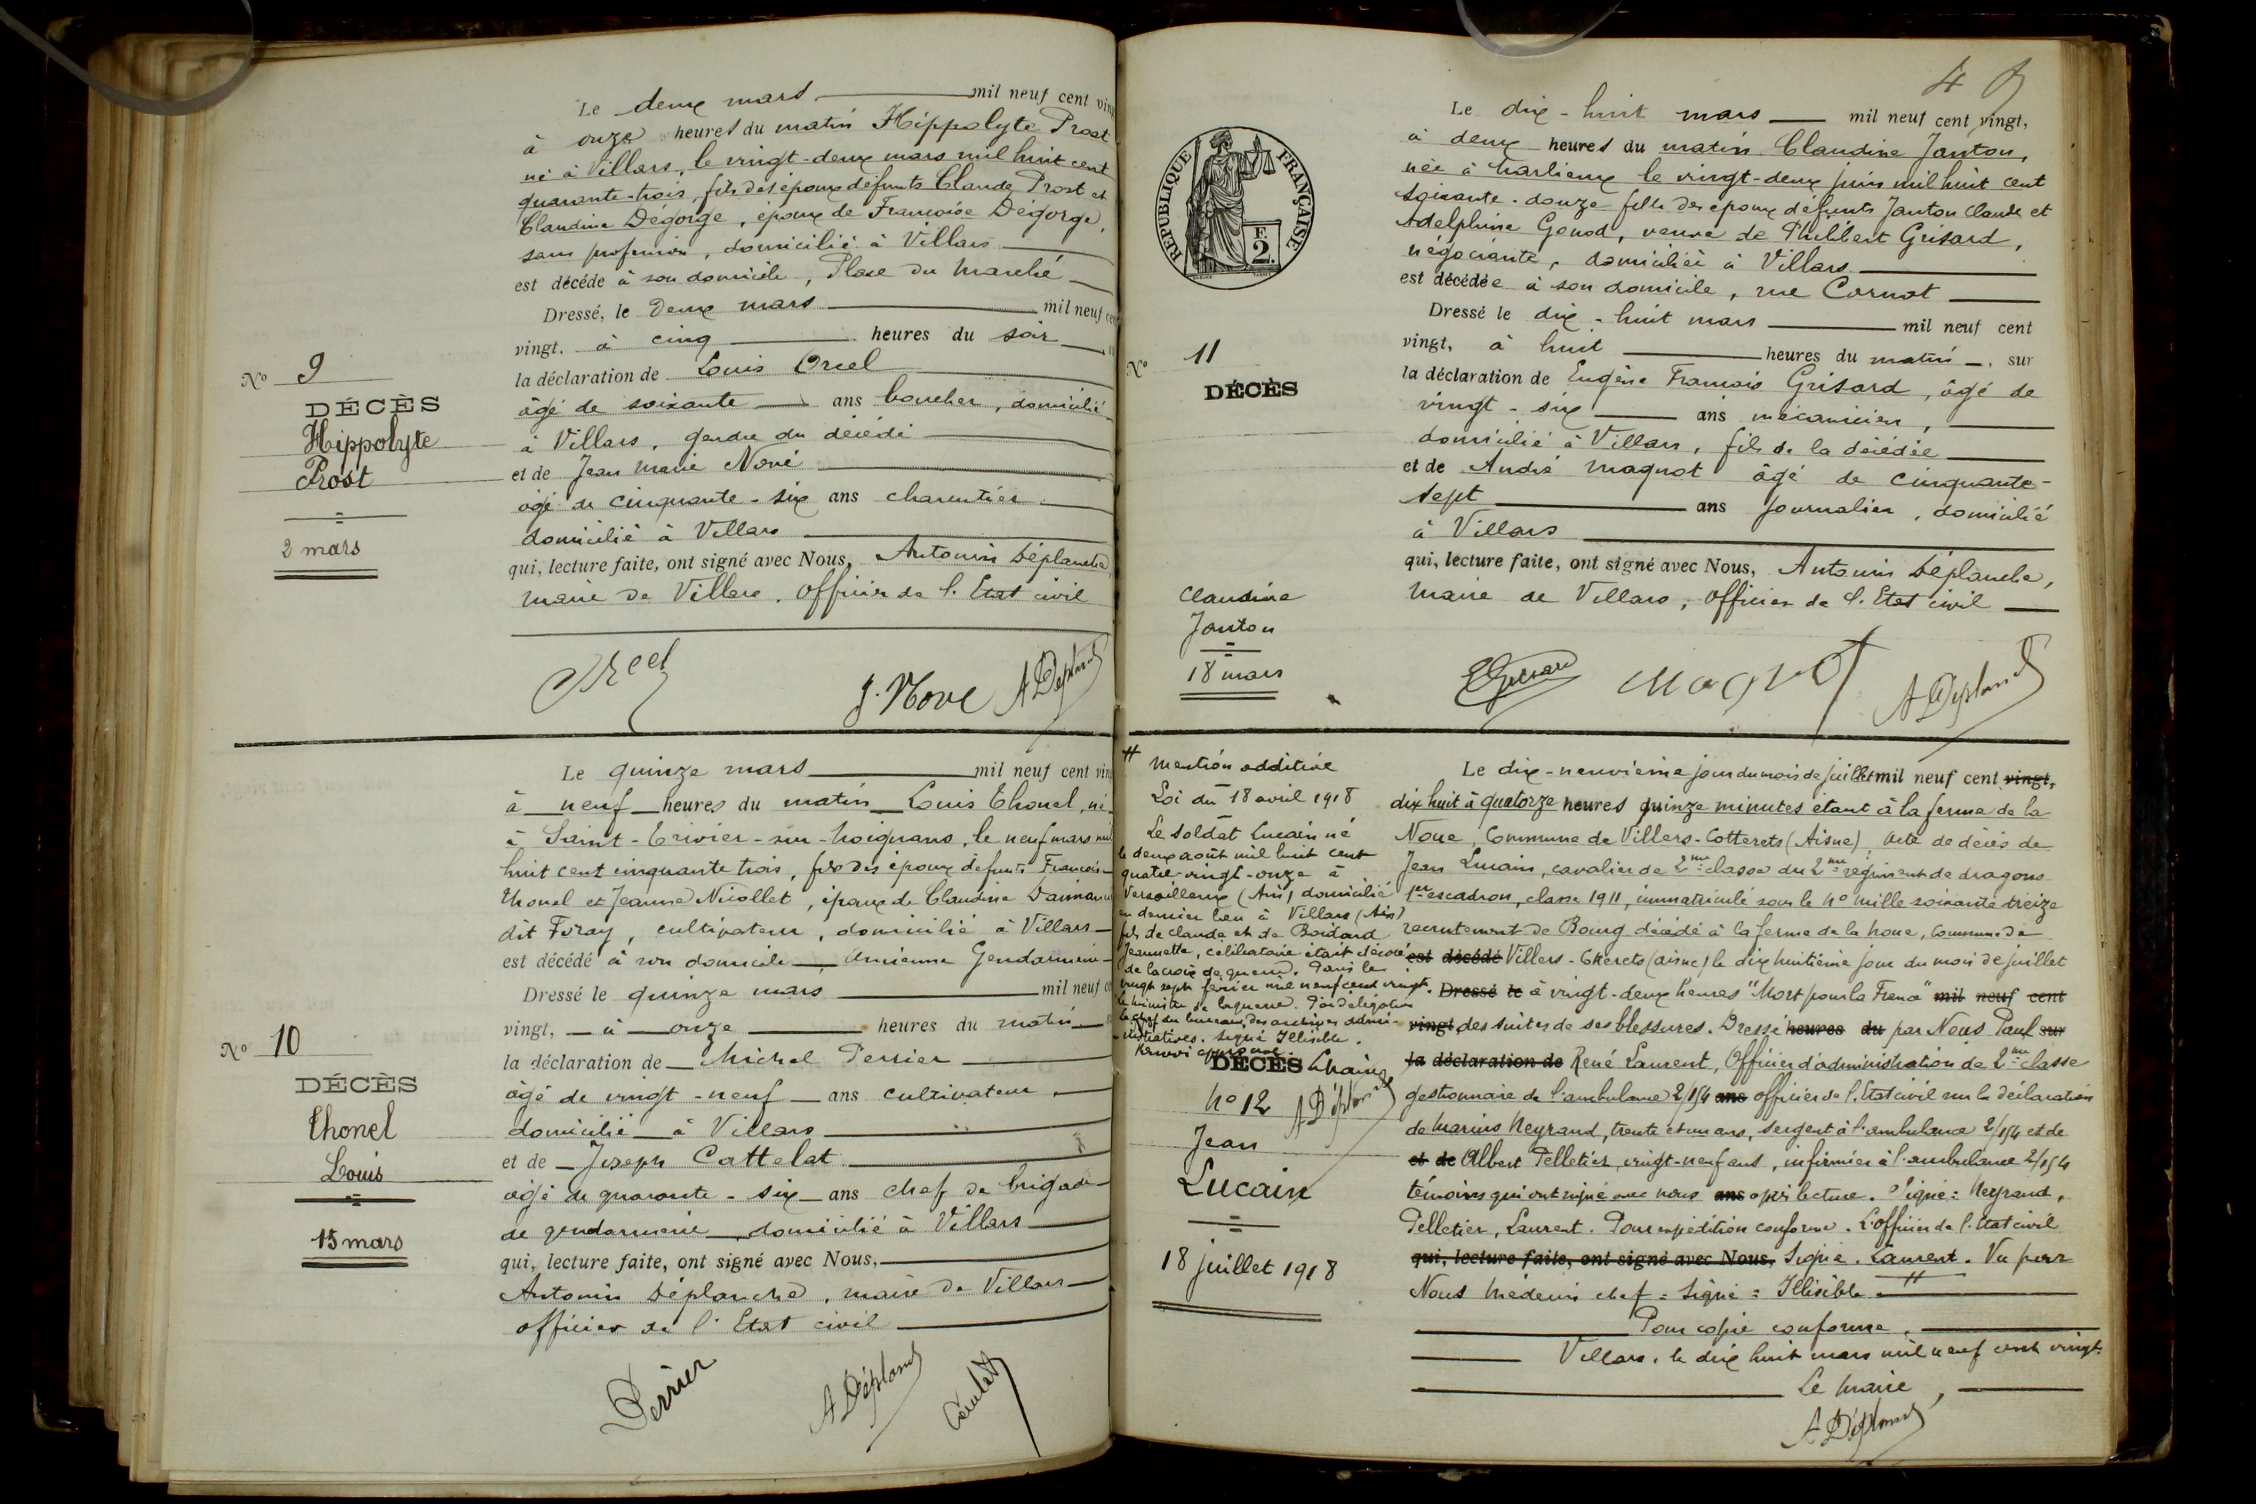 Le deux mars mil neuf cent vin
à onze heures du matin Hippolyte Prost
né à Villars, le vingt-deux mars mil huit cent
quarante-trois, fils des époux défunts Claude Prost et
Claudine Dégorge, époux de Françoise Dégorge,
sans profession, domicilié à Villars
est décédé à son domicile, Place du Marché
Dressé, le deux mars mil neuf cen
vingt, à cinq heures du soir
la déclaration de Louis Orcel
âgé de soixante ans boucher, domicilié
à Villars, gendre du décédé
et de Jean Marie Nové
âgé de cinquante-six ans charcutier
domicilié à Villars
qui, lecture faite, ont signé avec Nous, Antonin Déplanche,
maire de Villars, officier de l'Etat civil
Nº 9
DÉCÈS
Hippolyte
Prost
2 mars
Orcel
J. Nové
A Déplanche
Le quinze mars mil neuf cent vin
à neuf heures du matin Louis Thonel, né
à Saint-Trivier-sur-Moignans, le neuf mars mil
huit cent cinquante trois, fils des époux défunts François
Thonel et Jeanne Nicollet, époux de Claudine
dit Foray, cultivateur, domicilié à Villars
est décédé à son domicile, ancienne Gendarmerie
Dressé le quinze mars mil neuf c
vingt, à onze heures du matin
la déclaration de Michel Perrier
âgé de vingt-neuf ans cultivateur
domicilié à Villars
et de Joseph Cattelat
âgé de quarante-six ans chef de brigade
de gendarmerie, domicilié à Villars
qui, lecture faite, ont signé avec Nous,
Antonin Déplanche, maire de Villars
officier de l'Etat civil
Nº 10
DÉCÈS
Thonel
Louis
15 mars
Perrier
A Déplanche
4
RÉPUBLIQUE FRANÇAISE
F.
2.
Le dix-huit mars mil neuf cent vingt,
à deux heures du matin Claudine Janton,
née à Charlieux le vingt-deux juin mil huit cent
soixante-douze fille des époux défunts Janton Claude et
Adelphine Genod, veuve de Philibert Grisard,
négociante, domiciliée à Villars
est décédée à son domicile, rue Carnot
Dressé le dix-huit mars mil neuf cent
vingt, à huit heures du matin, sur
la déclaration de Eugène François Grisard, âgé de
vingt-six ans mécanicien,
domicilié à Villars, fils de la décédée
et de André Magnot âgé de cinquante-
sept ans journalier, domicilié
à Villars
qui, lecture faite, ont signé avec Nous, Antonin Déplanche,
maire de Villars, officier de l'Etat civil
Nº 11
DÉCÈS
Claudine
Janton
18 mars
EGrisard
Magnot
A Déplanche
Mention additive
Loi du 18 avril 1918
Le soldat Lucain né
le deux août mil huit cent
quatre-vingt-onze à
Versailleux (Ain) domicilié
en dernier lieu à Villars (Ain)
fils de Claude et de Boidard
Jeannette, célibataire était décoré
de la croix de guerre. Paris le
vingt sept février mil neuf cent vingt.
le ministre de la guerre. Par délégation
le chef du bureau des archives admi-
nistratives. Signé Illisible.
Renvoi approuvé.
Le Maire
A Déplanche
DÉCÈS
Nº 12
Jean
Lucain
18 juillet 1918
Le dix-neuvième jour du mois de juillet mil neuf cent vingt,
dix huit à quatorze heures quinze minutes étant à la ferme de la
Noue, Commune de Villers-Cotterets (Aisne), acte de décès de
Jean Lucain, cavalier de 2me classe du 2me régiment de dragons
1er escadron, classe 1911, immatriculé sous le Nº mille soixante treize
recrutement de Bourg décédé à la ferme de la Noue, Commune de
est décédé Villers-Cotterets (Aisne) le dix huitième jour du mois de juillet
Dressé le à vingt-deux heures "Mort pour la France" mil neuf cent
vingt, des suites de ses blessures. Dressé heures du par Nous Paul sur
la déclaration de René Laurent, Officier d'administration de 2me classe
gestionnaire de l'ambulance 2/154 ans officier de l'Etat civil sur la déclaration
de Marius Neyrand, trente et un ans, sergent à l'ambulance 2/154 et de
et de Albert Pelletier, vingt-neuf ans, infirmier à l'ambulance 2/154
témoins qui ont signé avec nous ans après lecture. Signé: Neyrand,
Pelletier, Laurent. Pour expédition conforme. L'officier de l'Etat civil
qui, lecture faite, ont signé avec Nous, Signé. Laurent. Vu par
Nous Médecin chef: Signé: Illisible
Pour copie conforme,
Villars, le dix huit mars mil neuf cent vingt.
Le Maire,
A Déplanche